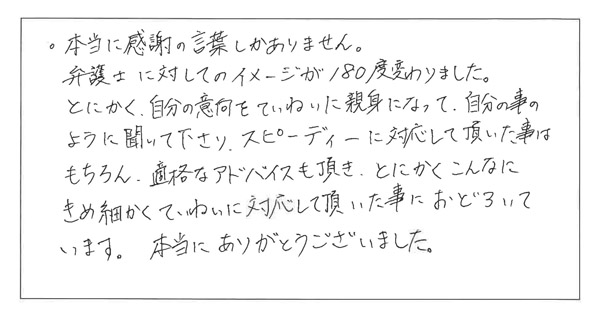 。本当に感謝の言葉しかありません。
弁護士に対してのイメージが180度変わりました。
とにかく、自分の意向をていねいに親身になって、自分の事の
ように聞いて下さり、スピーディーに対応して頂いた事は
もちろん、適格なアドバイスも頂き、とにかくこんなに
きめ細かくていねいに対応して頂いた事におどろいて
います。 本当にありがとうございました。